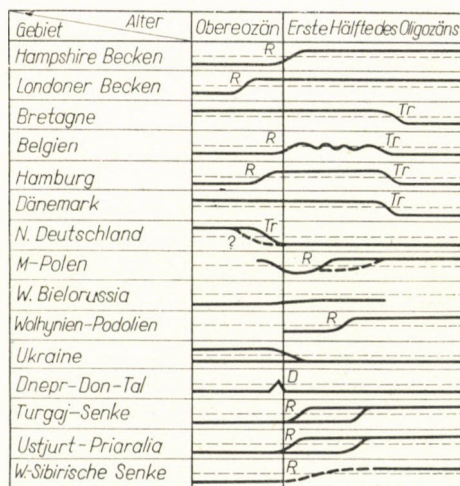 Gebiet Alter Obereozän Erste Hälfte des Oligozäns
Hampshire Becken R
Londoner Becken R
Bretagne Tr
Belgien R Tr
Hamburg R Tr
Dänemark Tr
N. Deutschland ? Tr
M-Polen R
W. Bielorussia
Wolhynien-Podolien R
Ukraine
Dnepr-Don-Tal D
Turgaj-Senke R
Ustjurt-Priaralia R
W.-Sibirische Senke R